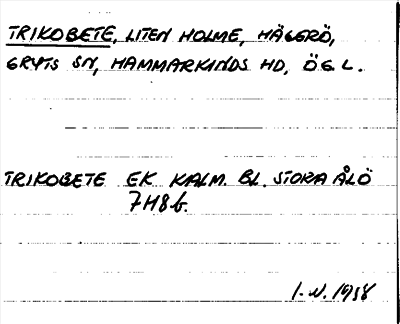 TRIKOBETE, LITEN HOLME, HÄGERÖ,
GRYTS SN, HAMMARKINDS HD, ÖGL.
TRIKOBETE EK KALM. BL. STORA ÅLÖ
7H8b.
I.W. 1958